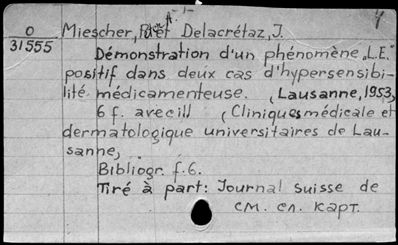 O
31555
Miescher, P. A. et Delacrétaz, J.
Démonstration d'un phénomène „L.E."
positif dans deux cas d'hypersensibi-
lité médicamenteuse. (Lausanne, 1953,
6 f. avec ill (Cliniques médicale et
dermatologique universitaires de Lau-
sanne,
Bibliogr. f. 6.
Tiré à part: Journal suisse de
см. сл. карт.